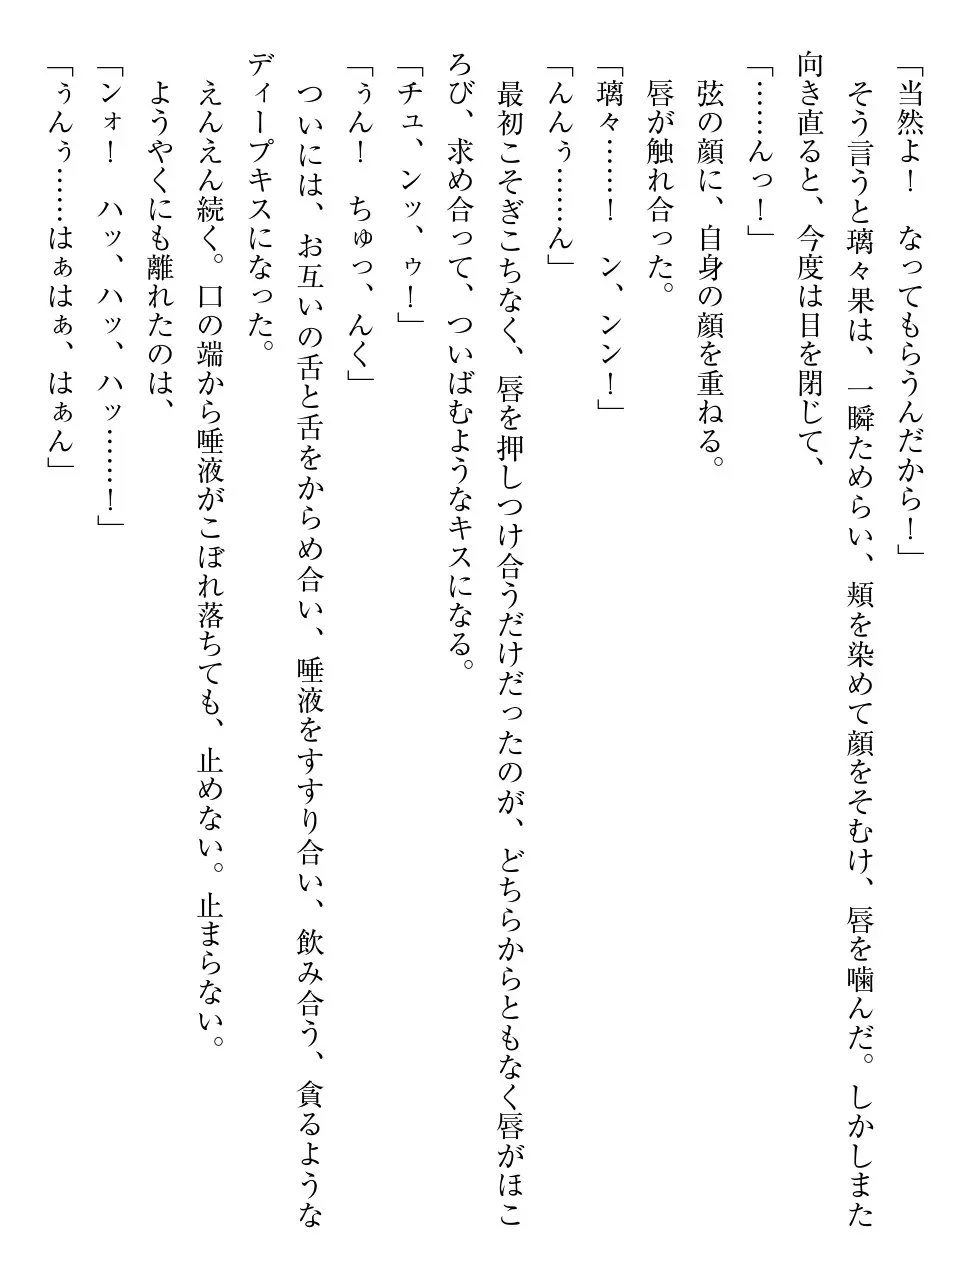 「当然よ！　なってもらうんだから！」
　そう言うと璃々果は、一瞬ためらい、頬を染めて顔をそむけ、唇を噛んだ。しかしまた
向き直ると、今度は目を閉じて、
「……んっ！」
　弦の顔に、自身の顔を重ねる。
　唇が触れ合った。
「璃々……！　ン、ンン！」
「んんぅ……ん」
　最初こそぎこちなく、唇を押しつけ合うだけだったのが、どちらからともなく唇がほこ
ろび、求め合って、ついばむようなキスになる。
「チュ、ンッ、ゥ！」
「ぅん！　ちゅっ、んく」
　ついには、お互いの舌と舌をからめ合い、唾液をすすり合い、飲み合う、貪るような
ディープキスになった。
　えんえん続く。口の端から唾液がこぼれ落ちても、止めない。止まらない。
　ようやくにも離れたのは、
「ンォ！　ハッ、ハッ、ハッ……！」
「ぅんぅ……はぁはぁ、はぁん」